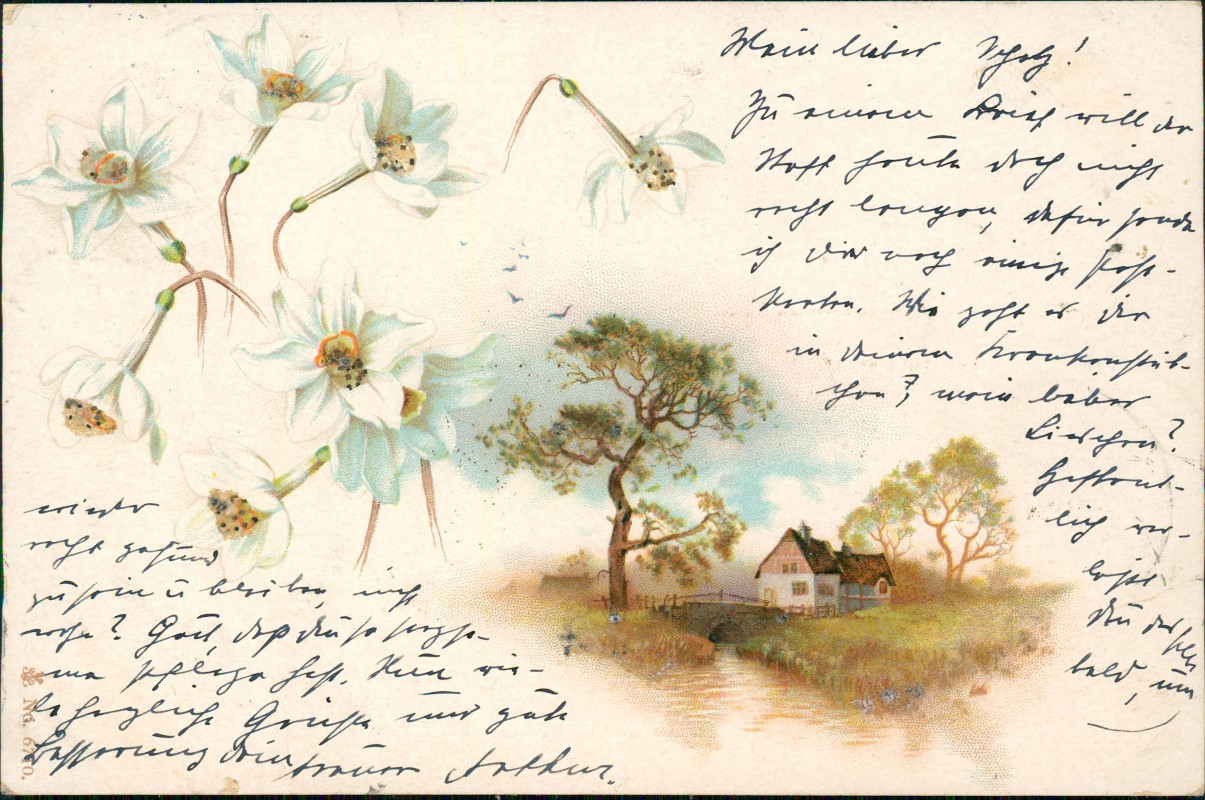 Mein lieber Schatz!
Zu einem Brief will der
Stoff heute doch nicht
recht langen, dafür sende
ich dir noch einige Post-
karten. Wie geht es dir
in deinem Krankenstüb-
chen?, mein liebes
Lieschen?
Hoffent-
lich ver-
läßt
Du dasselbe
bald, um
wieder
recht gesund
zu sein u bleiben, nicht
wahr? Gut, daß du so sorgsa-
me Pflege hast. Nun vie-
le herzliche Grüße und gute
Besserung dein treuer Arthur.
No. 6770.